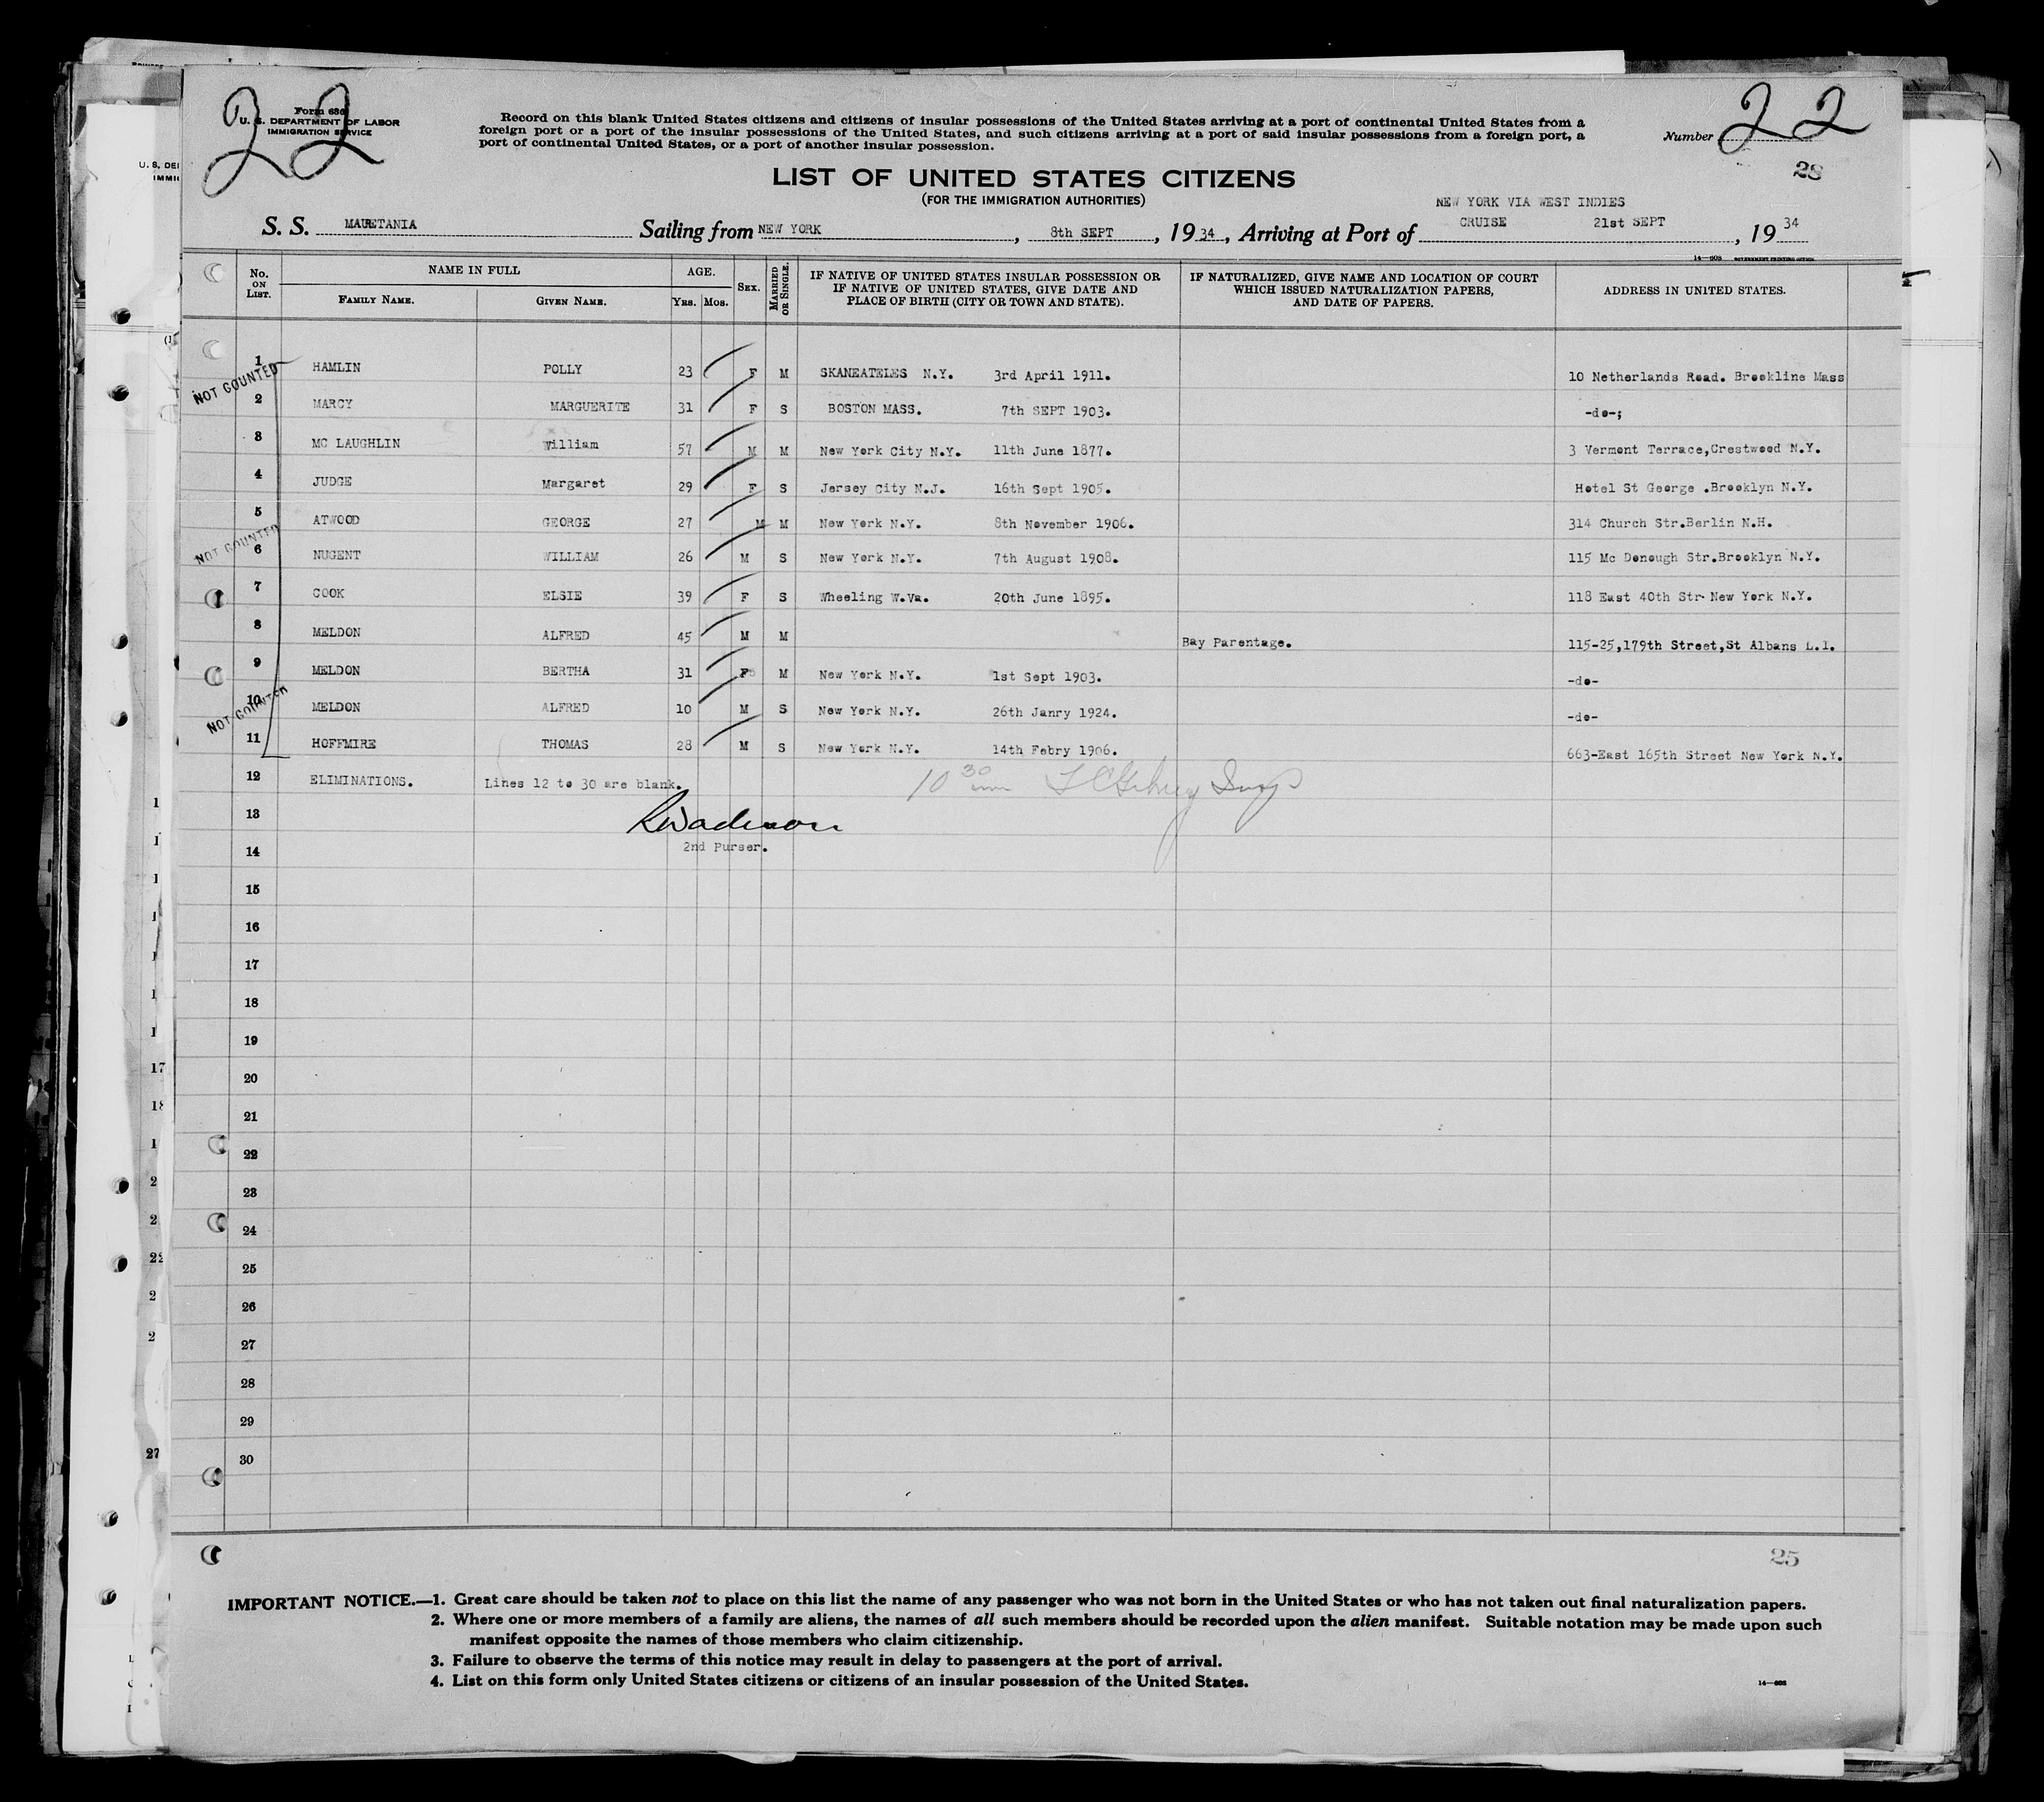 22
Form 630
U. S. DEPARTMENT OF LABOR
IMMIGRATION SERVICE
Record on this blank United States citizens and citizens of insular possessions of the United States arriving at a port of continental United States from a
foreign port or a port of the insular possessions of the United States, and such citizens arriving at a port of said insular possessions from a foreign port, a
port of continental United States, or a port of another insular possession.
Number 22
28
LIST OF UNITED STATES CITIZENS
(FOR THE IMMIGRATION AUTHORITIES)
NEW YORK VIA WEST INDIES
S. S. MAURETANIA Sailing from NEW YORK, 8th SEPT, 1934, Arriving at Port of CRUISE 21st SEPT, 1934
No. ON LIST. NAME IN FULL FAMILY NAME. GIVEN NAME. AGE. YRS. MOS. SEX. MARRIED OR SINGLE. IF NATIVE OF UNITED STATES INSULAR POSSESSION OR IF NATIVE OF UNITED STATES, GIVE DATE AND PLACE OF BIRTH (CITY OR TOWN AND STATE). IF NATURALIZED, GIVE NAME AND LOCATION OF COURT WHICH ISSUED NATURALIZATION PAPERS, AND DATE OF PAPERS. ADDRESS IN UNITED STATES.
1 HAMLIN POLLY 23 F M SKANEATELES N.Y. 3rd April 1911. 10 Netherlands Road. Brookline Mass
NOT COUNTED
2 MARCY MARGUERITE 31 F S BOSTON MASS. 7th SEPT 1903. -do-;
3 MC LAUGHLIN William 57 M M New York City N.Y. 11th June 1877. 3 Vermont Terrace,Crestwood N.Y.
4 JUDGE Margaret 29 F S Jersey City N.J. 16th Sept 1905. Hotel St George .Brooklyn N.Y.
5 ATWOOD GEORGE 27 M M New York N.Y. 8th November 1906. 314 Church Str.Berlin N.H.
NOT COUNTED
6 NUGENT WILLIAM 26 M S New York N.Y. 7th August 1908. 115 Mc Donough Str.Brooklyn N.Y.
7 COOK ELSIE 39 F S Wheeling W.Va. 20th June 1895. 118 East 40th Str. New York N.Y.
8 MELDON ALFRED 45 M M Bay Parentage. 115-25,179th Street,St Albans L.I.
9 MELDON BERTHA 31 F M New York N.Y. 1st Sept 1903. -do-
10 MELDON ALFRED 10 M S New York N.Y. 26th Janry 1924. -do-
NOT COUNTED
11 HOFFMIRE THOMAS 28 M S New York N.Y. 14th Febry 1906. 663-East 165th Street New York N.Y.
12 ELIMINATIONS. Lines 12 to 30 are blank. 10 30
13
14 2nd Purser.
15
16
17
18
19
20
21
22
23
24
25
26
27
28
29
30
25
IMPORTANT NOTICE.—1. Great care should be taken not to place on this list the name of any passenger who was not born in the United States or who has not taken out final naturalization papers.
2. Where one or more members of a family are aliens, the names of all such members should be recorded upon the alien manifest. Suitable notation may be made upon such
manifest opposite the names of those members who claim citizenship.
3. Failure to observe the terms of this notice may result in delay to passengers at the port of arrival.
4. List on this form only United States citizens or citizens of an insular possession of the United States.